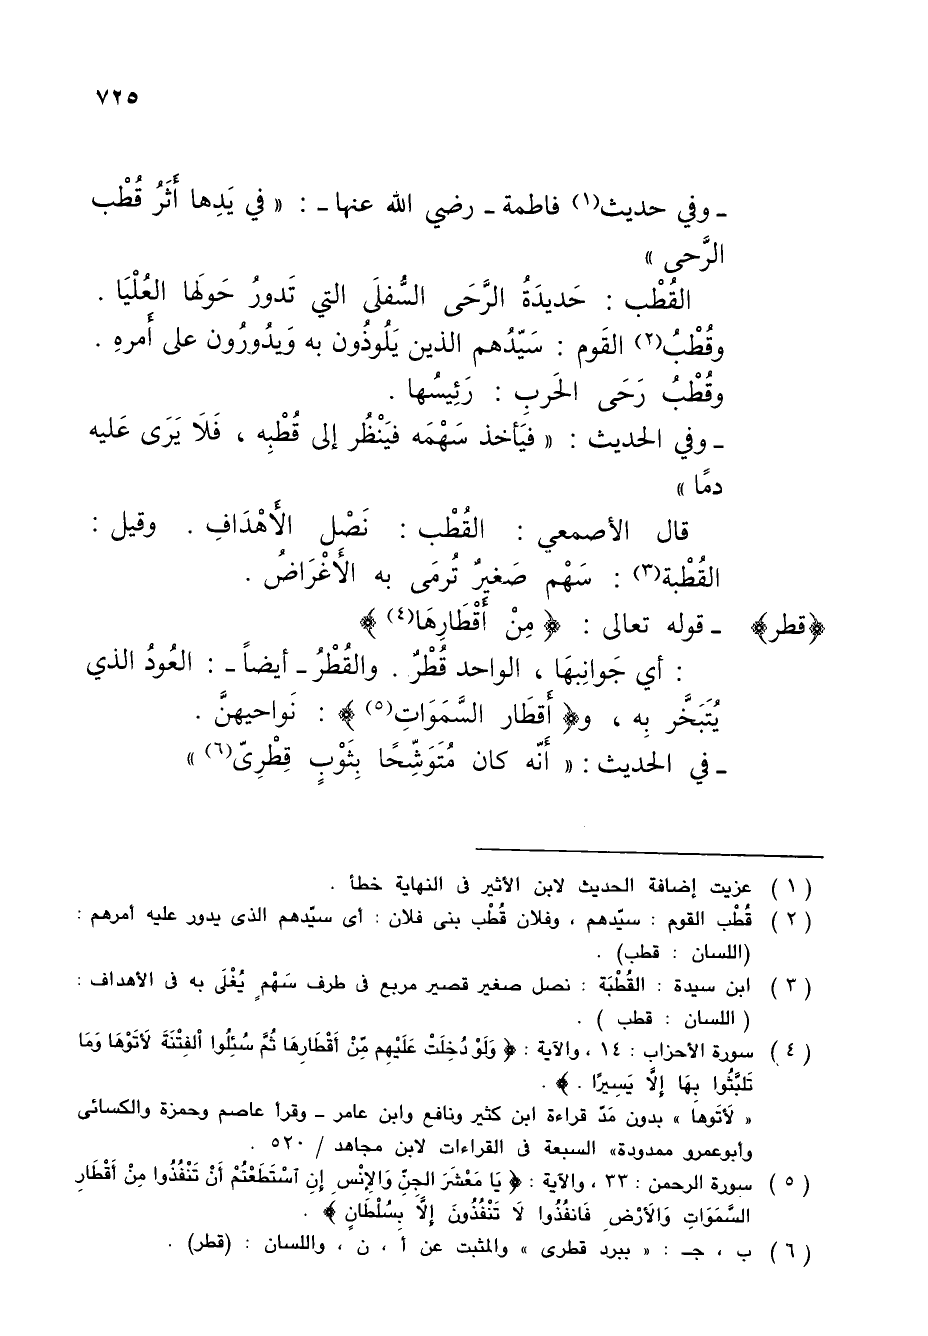 ٧٢٥
ـ وفي حديث(١) فاطمة ـ رضي الله عنها ـ : « في يَدِها أَثَرُ قُطْب
الرَّحى »
القُطْب : حَديدَةُ الرَّحَى السُّفلَى التي تَدورُ حَولَها العُلْيَا .
وقُطْبُ(٢) القَوم : سَيّدُهم الذين يَلُوذُون به وَيدُورُون على أَمرهِ .
وقُطْبُ رَحَى الحَربِ : رَئِيسُها .
ـ وفي الحديث : « فيَأخذ سَهْمَه فيَنْظُر إلى قُطْبِه ، فَلَا يَرَى عَليه
دمًا »
قال الأصمعي : القُطْب : نَصْل الأَهْدَافِ . وقيل :
القُطْبة(٣) : سَهْم صَغيرٌ تُرمَى به الأَغْرَاضُ .
﴿قطر﴾ ـ قوله تعالى : ﴿ مِنْ أَقْطَارِهَا(٤) ﴾
: أي جَوانِبهَا ، الواحد قُطْرٌ . والقُطْرُ ـ أيضاً ـ : العُودُ الذي
يُتَبَخَّر به ، و﴿ أَقطَار السَّمَوَاتِ(٥) ﴾ : نَواحيهنَّ .
ـ في الحديث : « أَنّه كان مُتَوَشِّحًا بِثَوْبٍ قِطْرِىّ(٦) »
(١) عزيت إضافة الحديث لابن الأثير فى النهاية خطأ .
(٢) قُطْب القوم : سيّدهم ، وفلان قُطْب بنى فلان : أى سيّدهم الذى يدور عليه أمرهم :
(اللسان : قطب) .
(٣) ابن سيدة : القُطْبَة : نصل صغير قصير مربع فى طرف سَهْمٍ يُغْلَى به فى الأهداف :
( اللسان : قطب ) .
(٤) سورة الأحزاب : ١٤ ، والآية : ﴿ وَلَوْ دُخِلَتْ عَلَيْهِم مِّنْ أَقْطَارِهَا ثُمَّ سُئِلُوا الْفِتْنَةَ لَأَتَوْهَا وَمَا
تَلَبَّثُوا بِهَا إِلَّا يَسِيرًا . ﴾ .
« لَأَتوها » بدون مَدّ قراءة ابن كثير ونافع وابن عامر ـ وقرأ عاصم وحمزة والكسائى
وأبوعمرو ممدودة» السبعة فى القراءات لابن مجاهد / ٥٢٠ .
(٥) سورة الرحمن : ٣٣ ، والآية : ﴿ يَا مَعْشَرَ الجِنِّ وَالإِنْسِ إِنِ اسْتَطَعْتُمْ أَنْ تَنْفُذُوا مِنْ أَقْطَارِ
السَّمَوَاتِ وَالأَرْضِ فَانفُذُوا لَا تَنْفُذُونَ إِلَّا بِسُلْطَانٍ ﴾ .
(٦) ب ، جـ : « ببرد قطرى » والمثبت عن أ ، ن ، واللسان : (قطر) .